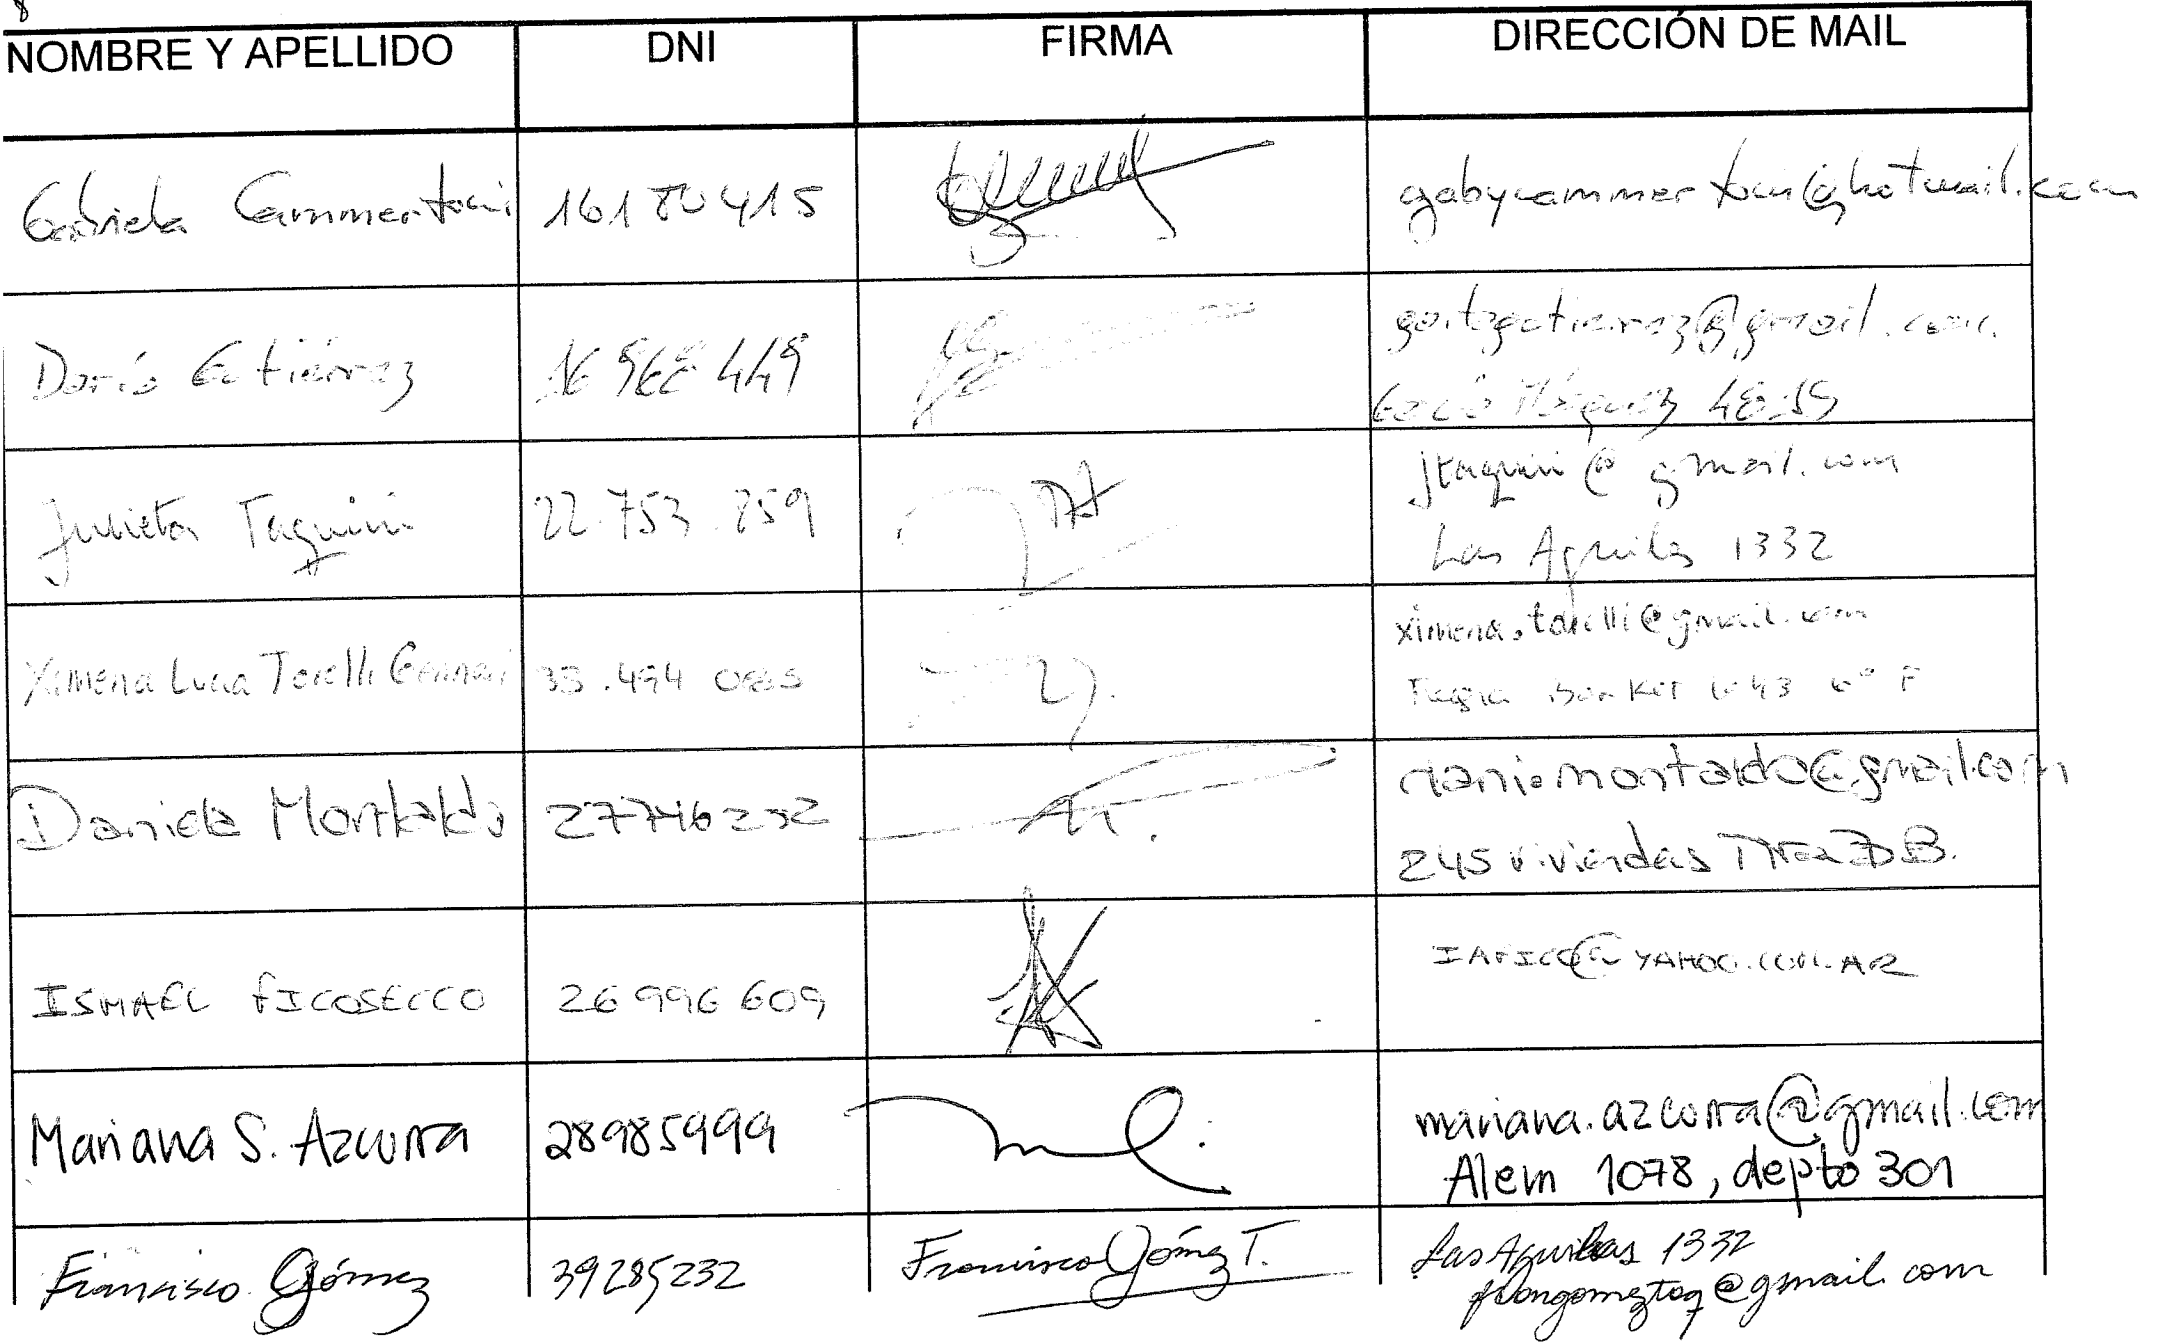 8
NOMBRE Y APELLIDO DNI FIRMA DIRECCIÓN DE MAIL
Gabriela Cammertoni 16180415 gabycammertoni@hotmail.com
Darío Gutiérrez 16 968 449 @gmail.com.
García Márquez
Julieta Taquini 22.753.859 jtaquini@gmail.com
Las Aguilas 1332
Ximena Luca Torelli ximena.torelli@gmail.com
6º F
Daniela Montaldo 27746232 daniomontaldo@gmail.com
245 viviendas
ISMAEL FICOSECCO 26 996 609 IAFICO@YAHOO.COM.AR
Mariana S. Azcurra 28985999 mariana.azcurra@gmail.com
Alem 1078, depto 301
Francisco Gómez 39285232 Francisco Gómez T. Las Aguilas 1332
frangomeztaq@gmail.com